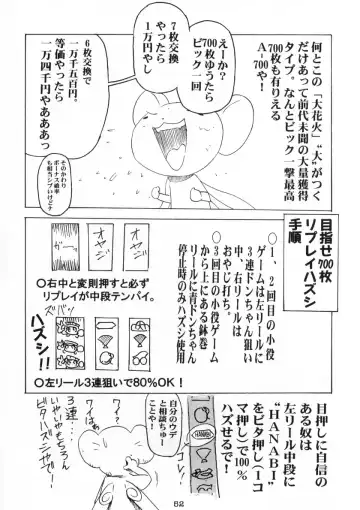 何とこの「大花火」“大”がつく
だけあって前代未聞の大量獲得
タイプ。なんとビック一撃最高
700枚も有りえる
A-700や!
えーか?
700枚ゆうたら
ビック一回
7枚交換
やったら
1万円やし
6枚交換で
一万千五百円。
等価やったら
一万四千円やあああっ
そのかわり
ボーナス確率
も相当シブいけどナ
目指せ700枚
リプレイハズシ
手順
○1、2回目の小役
ゲームは左リールに
3連ドンちゃん狙い
中、右リールは
おやじ打ち。
○3回目の小役ゲーム
から上にある鉢巻
リールに青ドンちゃん
停止時のみハズシ使用
オヤジ
オヤジ
ガーッ
○右中と変則押すと必ず
リプレイが中段テンパイ。
ズバッ
ハズシ!!
○左リール3連狙いで80%OK!
目押しに自信の
ある奴は
左リール中段に
“HANABI”
をビタ押し(1コ
マ押し)で100%
ハズせるで!
自分のウデ
と相談ちゅー
ことや!
ワイは?
ワイは?
3連…
いやいやもちろん
ビタハズシやで!
62